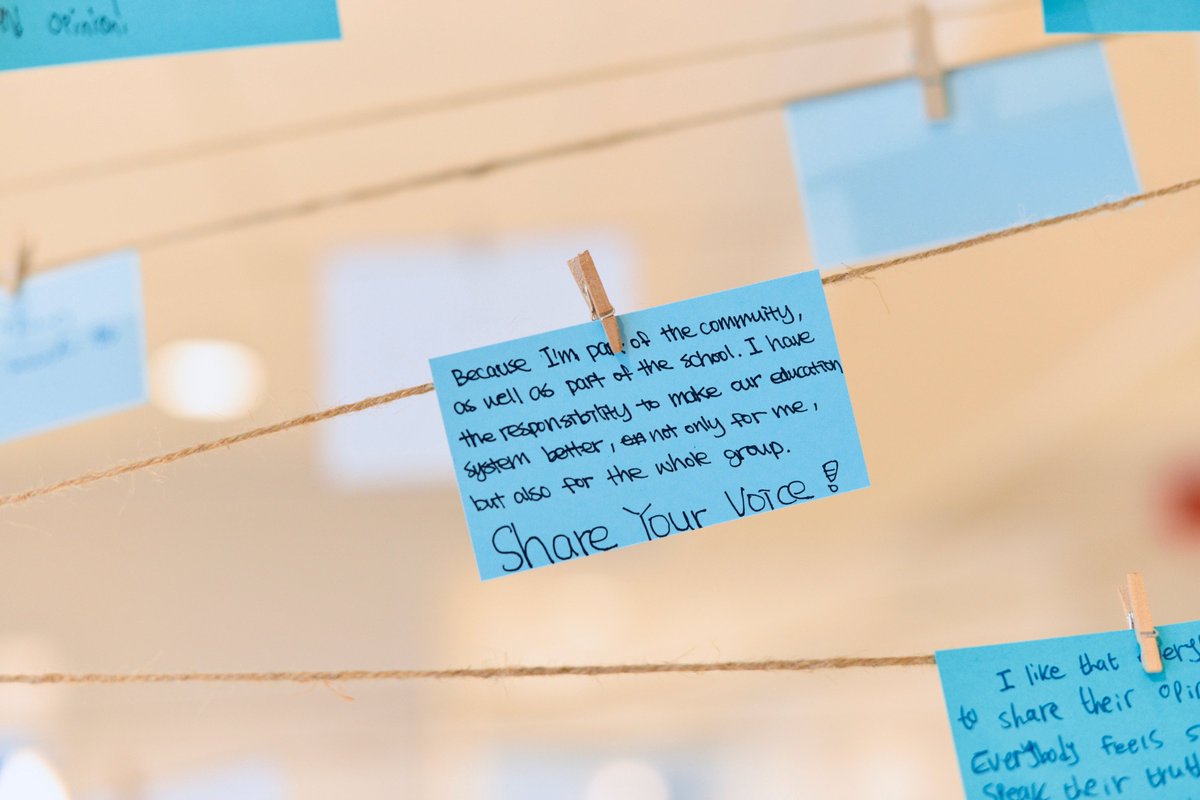 opinion!
Because I'm part of the commuity,
as well as part of the school. I have
the responsibility to make our education
system better, not only for me,
but also for the whole group.
Share Your Voice!
I like that
to share their
Everybody feels
speak their